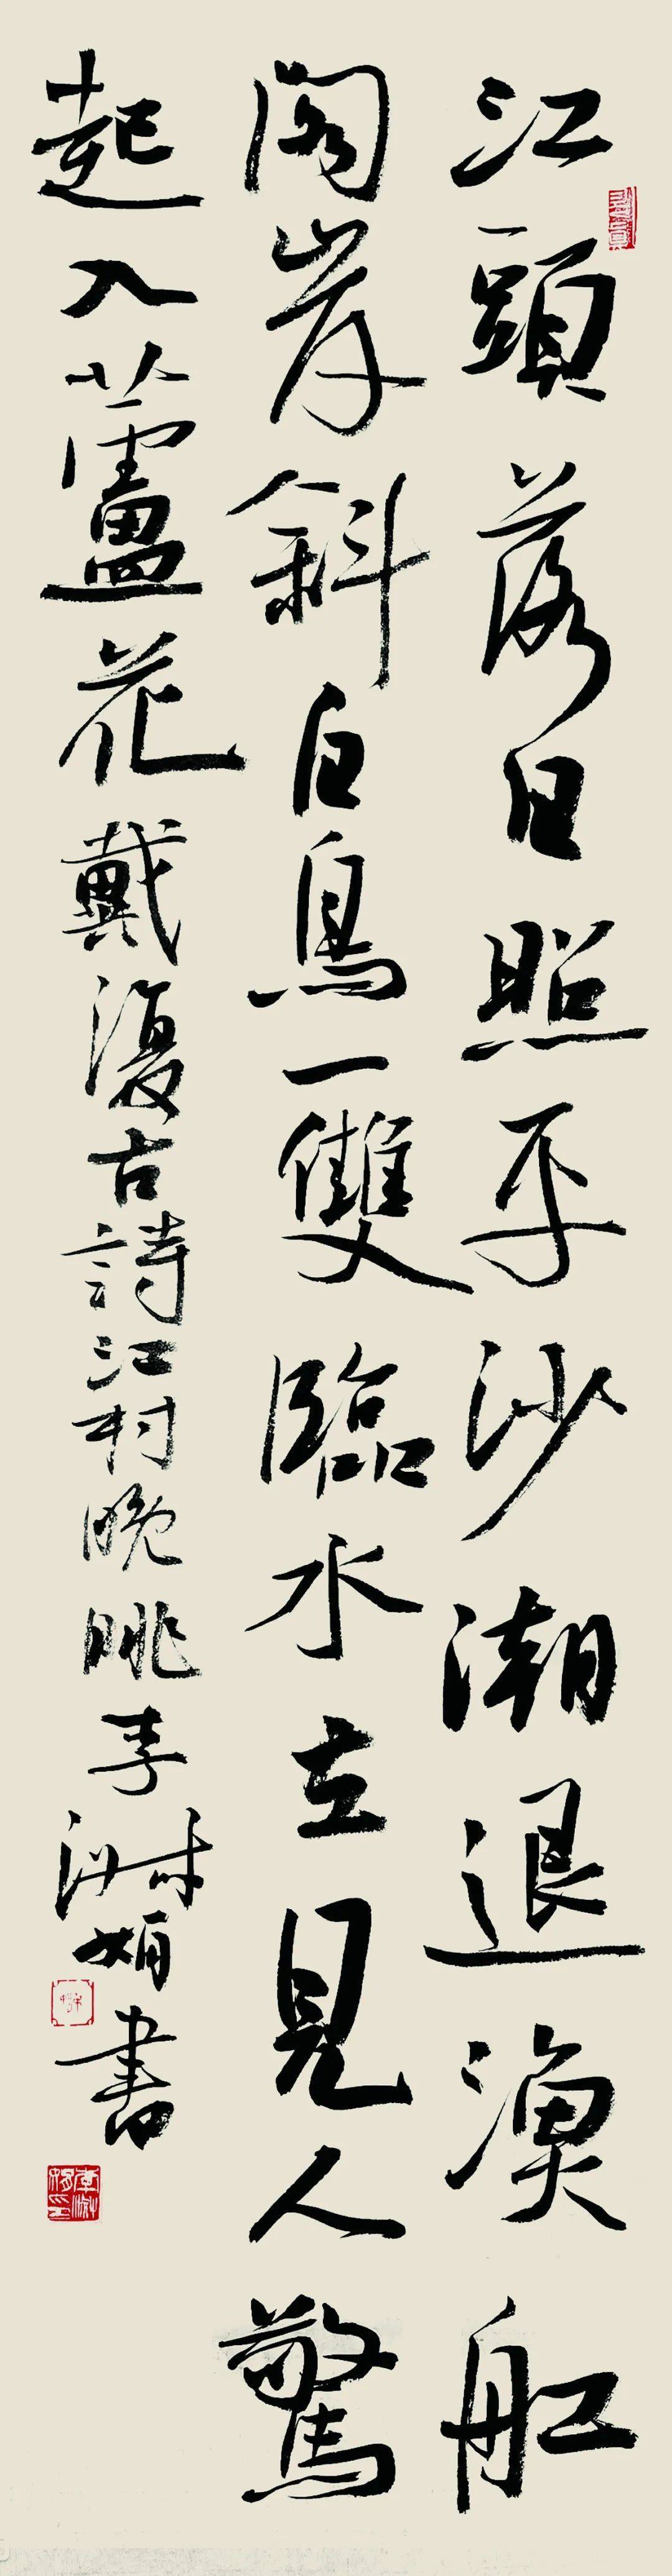 江頭落日照平沙潮退漁舡
閣岸斜白鳥一雙臨水立見人驚
起入蘆花戴復古詩江村晚眺李淑娟書